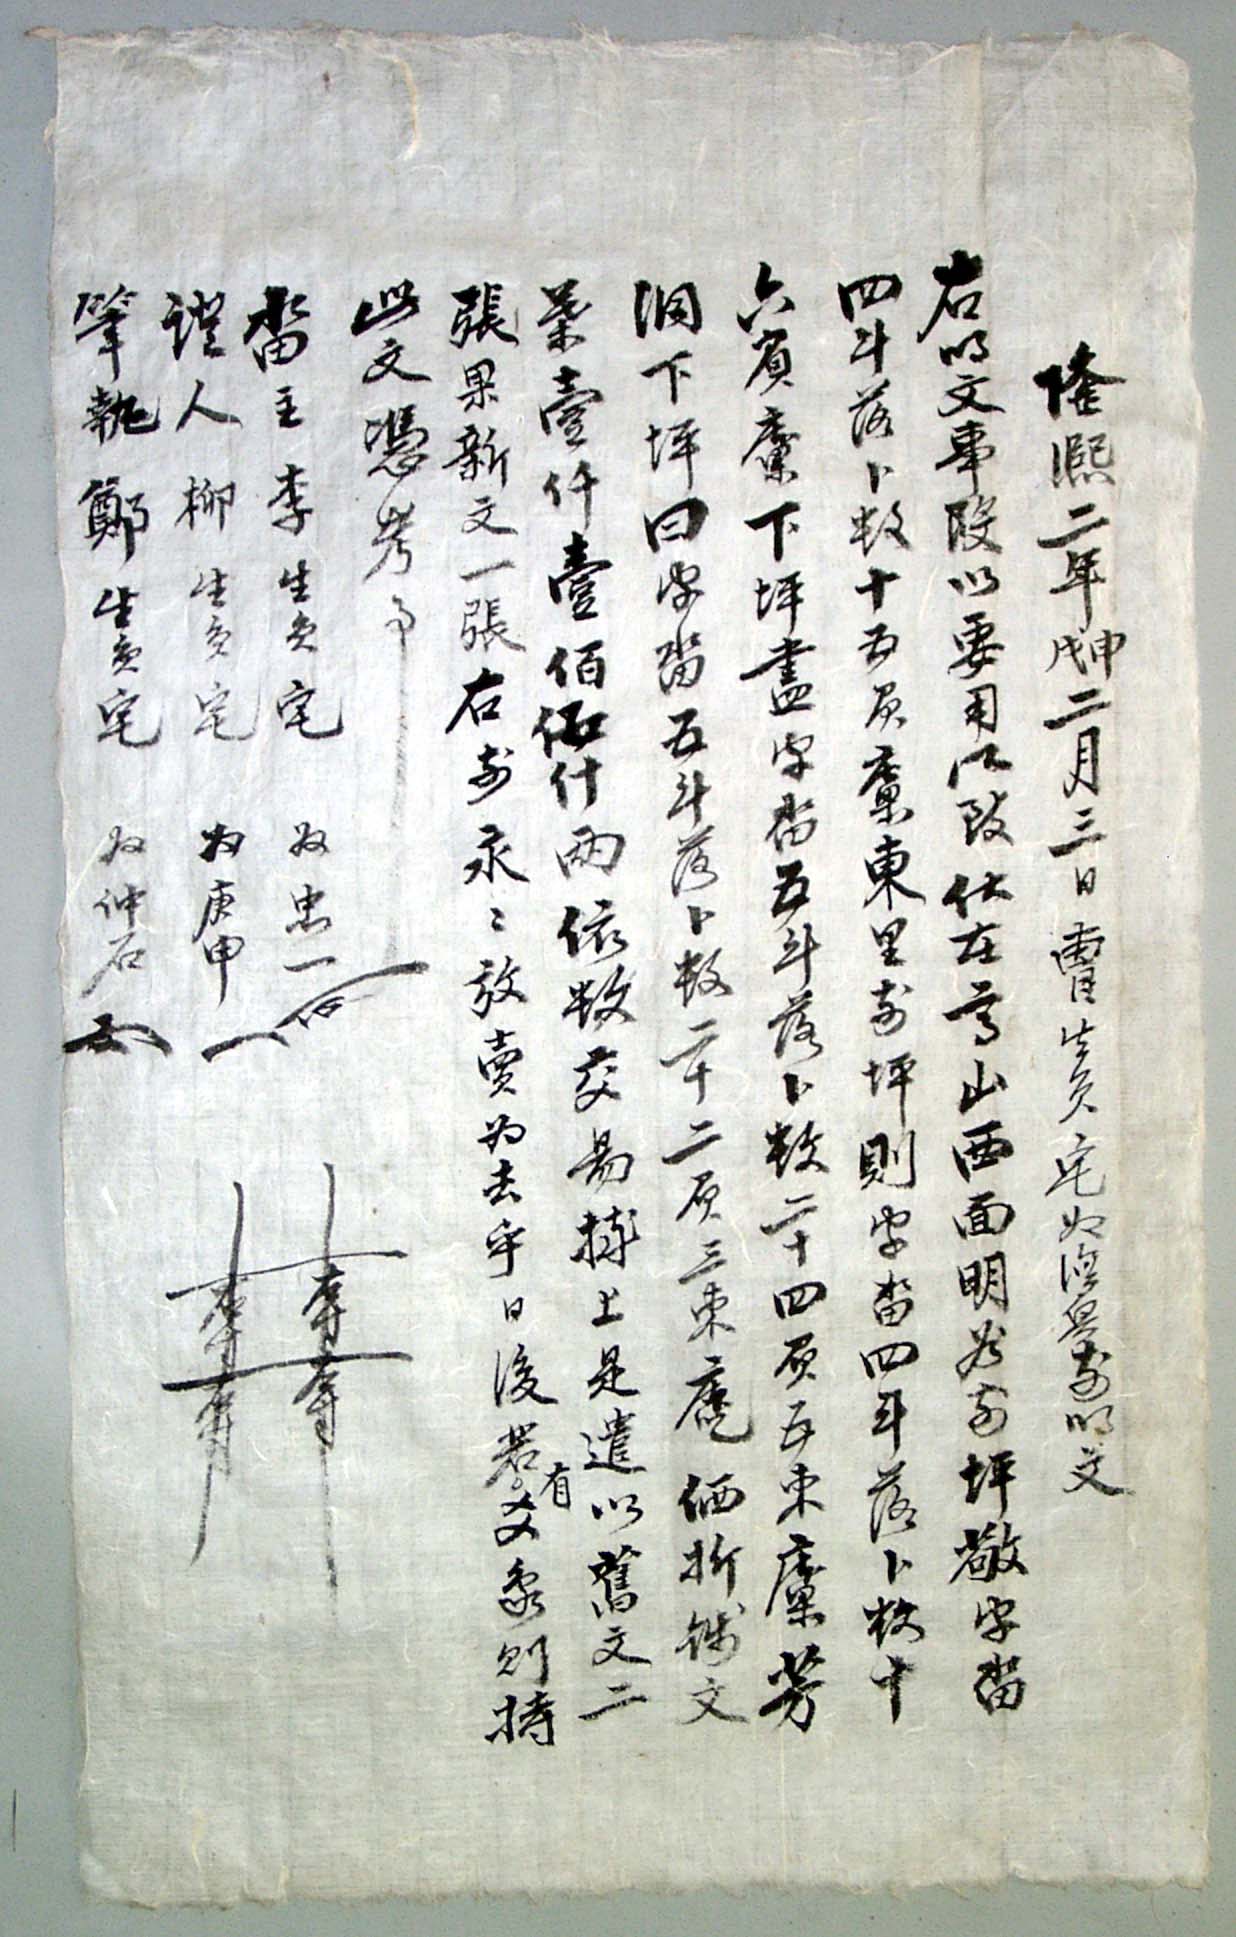 隆熙二年戊申二月三日曺生員宅奴 前明文
右明文事段以要用所致伏在高山西面明 前坪敬字畓
四斗落卜数十五負 東里前坪則字畓四斗落卜数十
六負 下坪盡字畓五斗落卜数二十四負五束 芳
洞下坪曰字畓五斗落卜数二十二負三束 価折錢文
葉壹仟壹佰伍什両依数交易捧上是遣以舊文二
張果新文一張右前永〻放賣為去乎日後若有 則持
此文憑考事
畓主李生員宅奴忠一
證人柳生員宅奴庚申
筆執鄭生員宅奴仲石